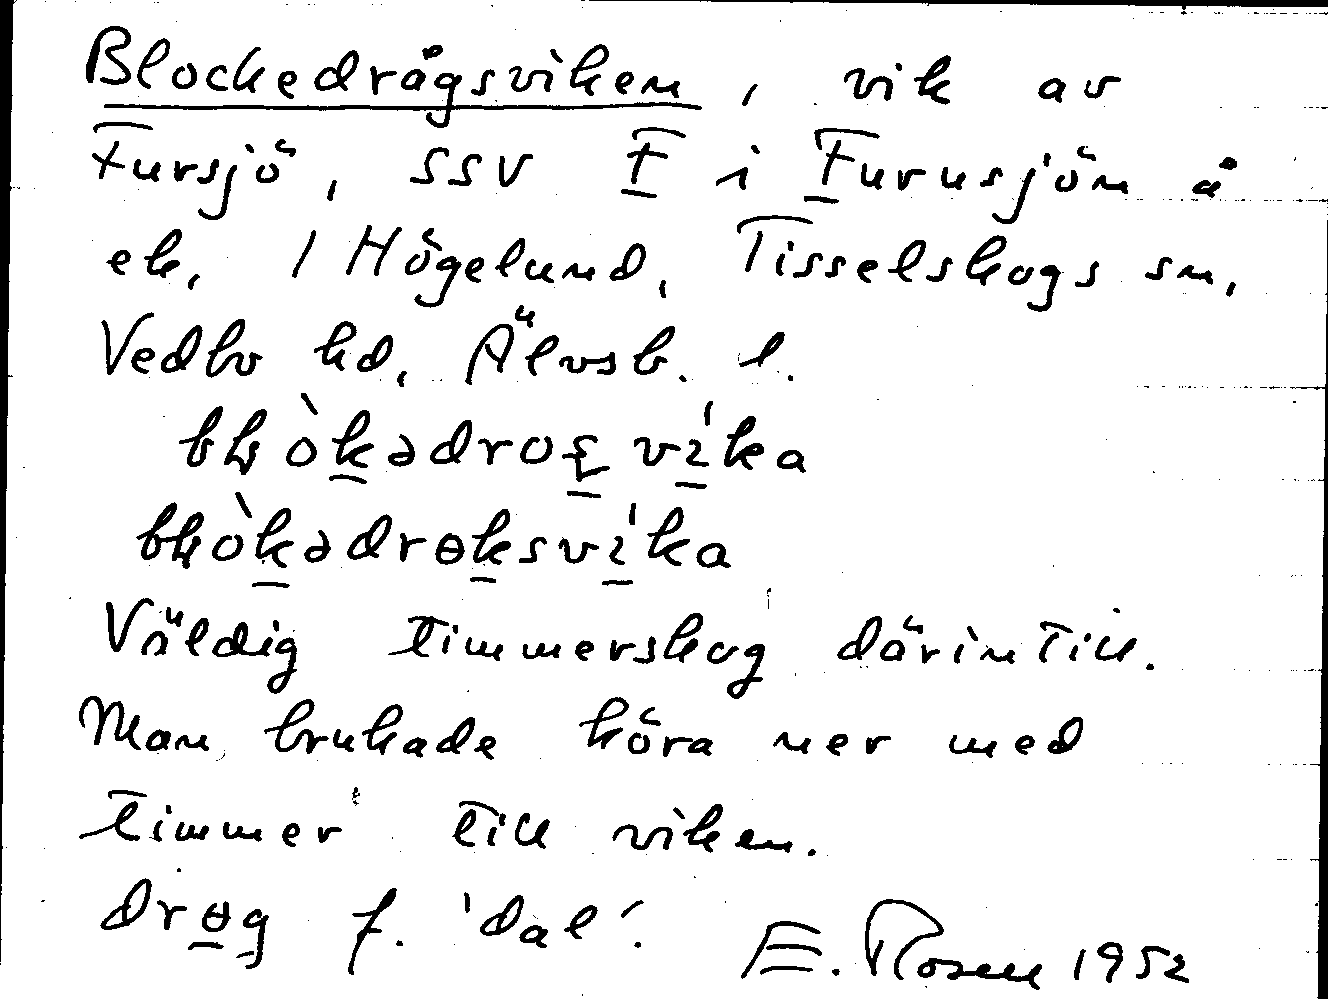 Blockedrågsviken, vik av
Fursjö, SSV F i Furusjön å
ek, 1 Högelund, Tisselskogs sn,
Vedbo hd, Älvsb. l.
Väldig timmerskog därintill.
Man brukade köra ner med
timmer till viken.
drɵg f. 'dal'.
E. Rosen 1952